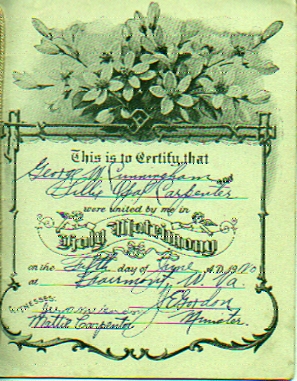 This is to Certify that
George W Cunningham and
Lillie Opal Carpenter
were united by me in
Holy Matrimony
on the Fifth day of June A.D. 1920
at Fairmont, W. Va.
WITNESSES:
Mattie Carpenter
Minister.